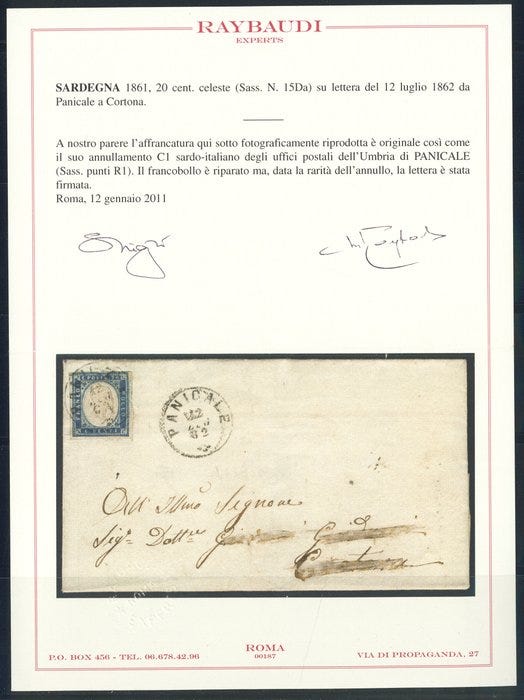 RAYBAUDI
EXPERTS
SARDEGNA 1861, 20 cent. celeste (Sass. N. 15Da) su lettera del 12 luglio 1862 da
Panicale a Cortona.
A nostro parere l'affrancatura qui sotto fotograficamente riprodotta è originale così come
il suo annullamento C1 sardo-italiano degli uffici postali dell'Umbria di PANICALE
(Sass. punti R1). Il francobollo è riparato ma, data la rarità dell'annullo, la lettera è stata
firmata.
Roma, 12 gennaio 2011
PANICALE
12
62
All' Illmo Signore
Sigr Dottre
Cortona
P.O. BOX 456 - TEL. 06.678.42.96
ROMA
00187
VIA DI PROPAGANDA, 27